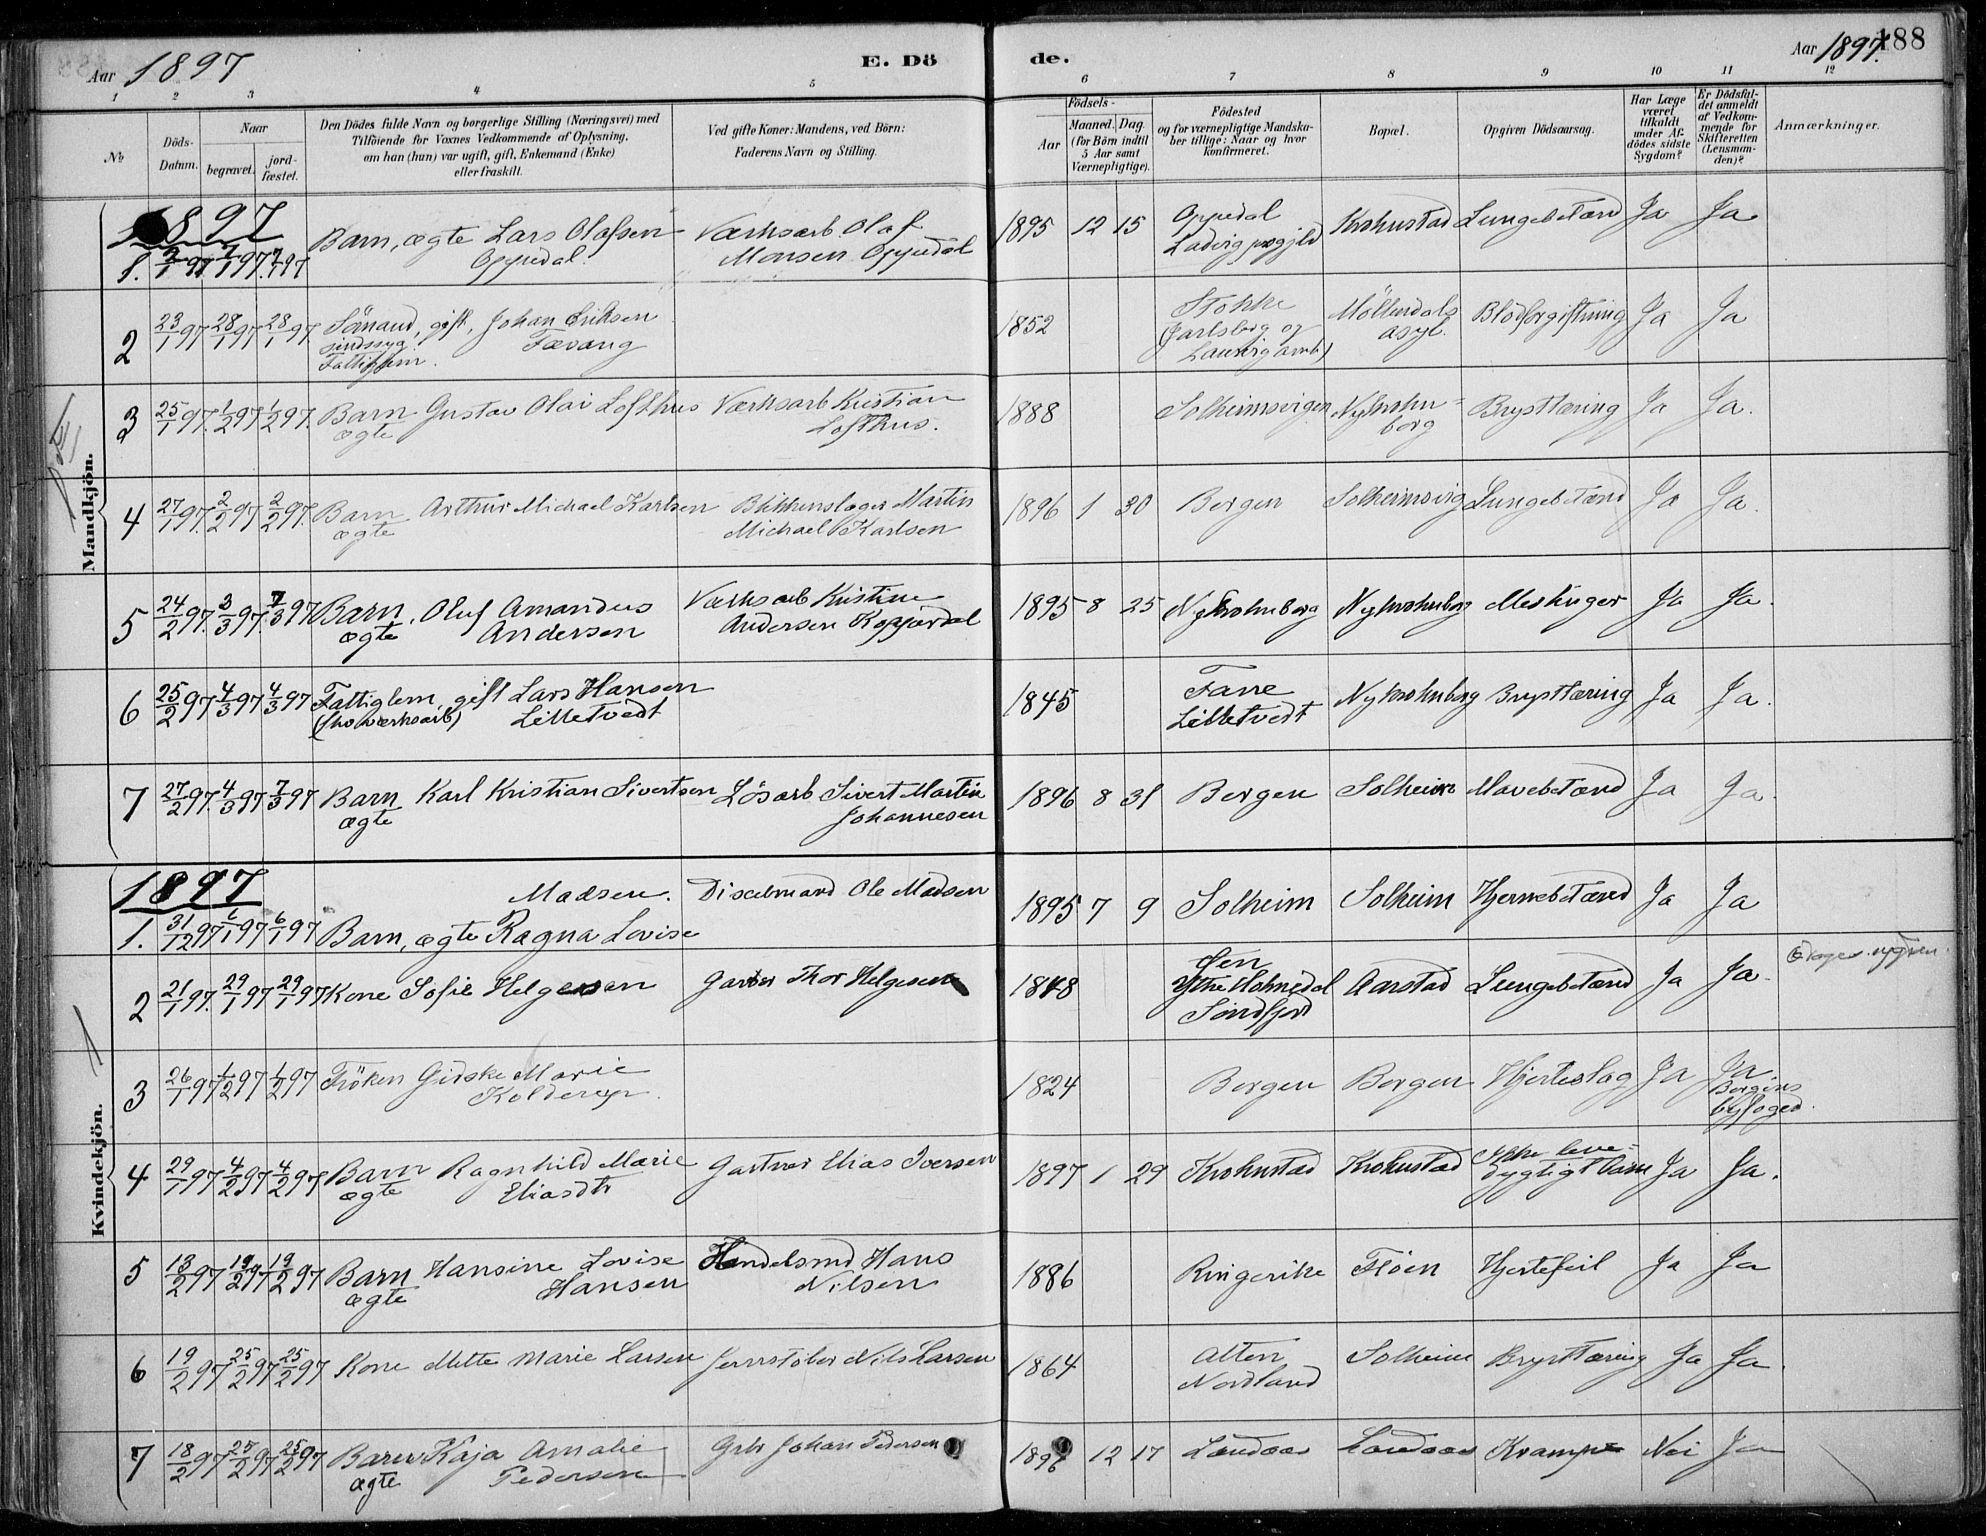 Aar 1897
E. Dö
de.
Aar 1897.
188
1 2 3 4 5 6 7 8 9 10 11 12
№
Döds-Datum.
Naar
begravet.
jordfæstet.
Den Dödes fulde Navn og borgerlige Stilling (Næringsvei) med
Tilföiende for Voxnes Vedkommende af Oplysning,
om han (hun) var ugift, gift, Enkemand (Enke)
eller fraskilt.
Ved gifte Koner: Mandens, ved Börn:
Faderens Navn og Stilling.
Födsels-
Aar
Maaned. Dag
(for Börn indtil
5 Aar samt
Værnepligtige).
Födested
og for værnepligtige Mandska-
ber tillige: Naar og hvor
konfirmeret.
Bopæl.
Opgiven Dödsaarsag.
Har Læge
været
tilkaldt
under Af-
dödes sidste
Sygdom?
Er Dödsfal-
det anmeldt
af Vedkom-
mende for
Skifteretten
(Lensman-
den)?
Anmærkninger.
Mandkjön.
1897
1. 2/1 97 7/1 97 7/1 97 Barn, ægte Lars Olafsen Værksarb. Olaf 1895 12 15 Oppedal Krohnstad Lungebetænd Ja Ja
Oppedal. Monsen Oppedal Ladvig prgjld
2 23/1 97 28/1 97 28/1 97 Sömand, gift, Johan Eriksen 1852 Stokke Möllendals Blodforgiftning Ja Ja
sindssyg. Fævang (Jarlsberg og asyl.
Fattiglem. Laurvig amt)
3 25/1 97. 1/2 97 1/2 97. Barn Gustav Olai Lofthus Værksarb Kristian 1888 Solheimsvigen Nykrohn- Brysttæring Ja Ja.
ægte Lofthus. borg
4 27/1 97. 2/2 97 2/2 97. Barn Arthur Michael Karlsen Blikkenslager Martin 1896 1 30 Bergen Solheimsvig Lungebetænd Ja Ja.
ægte Michael Karlsen
5 24/2 97. 3/3 97. 7/3 97 Barn, Oluf Amandus Værksarb Kristian 1895 8 25 Nykrohnborg Nykrohnborg Meslinger Ja Ja.
ægte Andersen Andersen Kopperdal
6 25/2 97 4/3 97 4/3 97 Fattiglem, gift Lars Hansen 1845 Fane Nykrohnborg Brysttæring Ja Ja.
(fhv værksarb) Lilletvedt Lilletvedt
7 27/2 97. 4/3 97 7/3 97 Barn Karl Kristian Sivertsen Lösarb Sivert Martin 1896 8 31 Bergen Solheim Mavebetænd Ja Ja.
ægte Johannesen
Kvindekjön.
1897
Madsen. Diselmand Ole Madsen 1895 7 9 Solheim Solheim Hjernebetænd Ja Ja
1. 31/12 97 6/1 97 6/1 97 Barn, ægte Ragna Lovise
2 21/1 97. 29/1 97 29/1 97 Kone Sofie Helgesen Garver Thor Helgesen 1848 Ytre Holmedal Aarstad Lungebetænd Ja Ja.
Söndfjord
3 26/1 97 1/2 97 1/2 97 Fröken Gidske Marie 1824 Bergen Bergen Hjerteslag Ja Ja.
Kolderup. Bergens
byfoged.
4 29/1 97 4/2 97 4/2 97 Barn Ragnhild Marie Gartner Elias Iversen 1897 1 29 Krohnstad Krohnstad Ikke leve- Ja Ja.
ægte Eliasdtr dygtigt Barn
5 13/2 97 19/2 97 19/2 97 Barn Hansine Lovise Handelsmd Hans 1886 Ringerike Flöen Hjertefeil Ja Ja
ægte Hansen Nilsen
6 19/2 97 25/2 97 25/2 97 Kone Mette Marie Larsen Jernstöber Nils Larsen 1864 Alten Solheim Brysttæring Ja Ja.
Nordland
7 18/2 97 25/2 97 25/2 97 Barn Kaja Amalie Gbr Johan Pedersen 1896 12 17 Landaas Landaas Krampe Nei Ja
ægte Pedersen